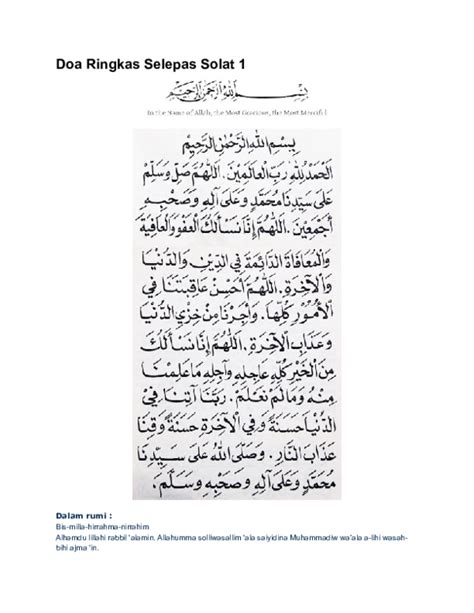 Doa Ringkas Selepas Solat 1
بِسْمِ اللهِ الرَّحْمٰنِ الرَّحِيْمِ
In the Name of Allah, the Most Gracious, the Most Merciful
بِسْمِ اللهِ الرَّحْمٰنِ الرَّحِيْمِ
اَلْحَمْدُ لِلّٰهِ رَبِّ الْعَالَمِيْنَ. اَللّٰهُمَّ صَلِّ وَسَلِّمْ
عَلَى سَيِّدِنَا مُحَمَّدٍ وَعَلَى آلِهِ وَصَحْبِهِ
أَجْمَعِيْنَ. اَللّٰهُمَّ إِنَّا نَسْأَلُكَ الْعَفْوَ وَالْعَافِيَةَ
وَالْمُعَافَاةَ الدَّائِمَةَ فِي الدِّيْنِ وَالدُّنْيَا
وَالْآخِرَةِ. اَللّٰهُمَّ أَحْسِنْ عَاقِبَتَنَا فِي
الْأُمُوْرِ كُلِّهَا. وَأَجِرْنَا مِنْ خِزْيِ الدُّنْيَا
وَعَذَابِ الْآخِرَةِ. اَللّٰهُمَّ إِنَّا نَسْأَلُكَ
مِنَ الْخَيْرِ كُلِّهِ عَاجِلِهِ وَآجِلِهِ مَا عَلِمْنَا
مِنْهُ وَمَا لَمْ نَعْلَمْ. رَبَّنَا آتِنَا فِيْ
الدُّنْيَا حَسَنَةً وَفِي الْآخِرَةِ حَسَنَةً وَقِنَا
عَذَابَ النَّارِ. وَصَلَّى اللهُ عَلَى سَيِّدِنَا
مُحَمَّدٍ وَعَلَى آلِهِ وَصَحْبِهِ وَسَلَّمَ.
Dalam rumi :
Bis-milla-hirrahma-nirrahim
Alhamdu lillahi rabbil 'alamin. Allahumma solliwasallim 'ala saiyidina Muhammadiw wa'ala a-lihi wasah-
bihi ajma 'in.